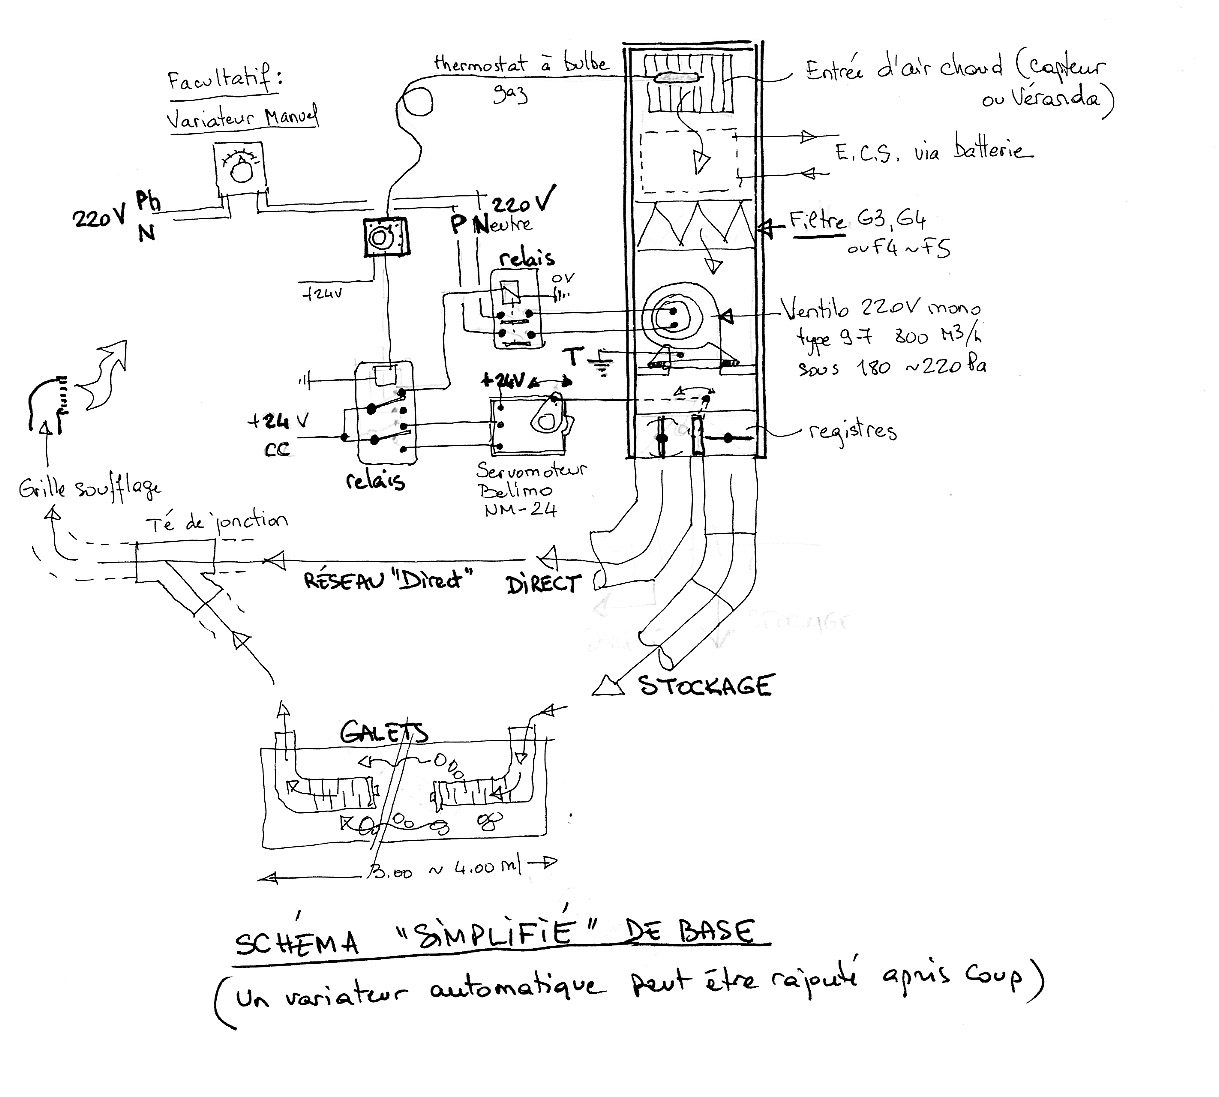 Facultatif:
Variateur Manuel
thermostat à bulbe
gaz
Entrée d'air chaud (capteur
ou Véranda)
E.C.S. via batterie
220V Ph
N
220V
P Neutre
Filtre G3, G4
ou F4 ~ F5
relais
0V
+24V
Ventilo 220V mono
type 9-7 800 M3/h
sous 180 ~220 Pa
T
+24V
+24 V
CC
relais
Servomoteur
Belimo
NM-24
registres
Grille soufflage
Té de jonction
RÉSEAU "Direct"
DIRECT
STOCKAGE
GALETS
3.00 ~ 4.00 ml
SCHÉMA "SIMPLIFIÉ" DE BASE
(Un variateur automatique peut être rajouté après coup)